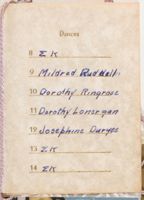 Dances
8 Σ K
9 Mildred Ruddell
10 Dorothy Ringrose
11 Dorothy Lonergan
12 Josephine
13 Σ K
14 Σ K